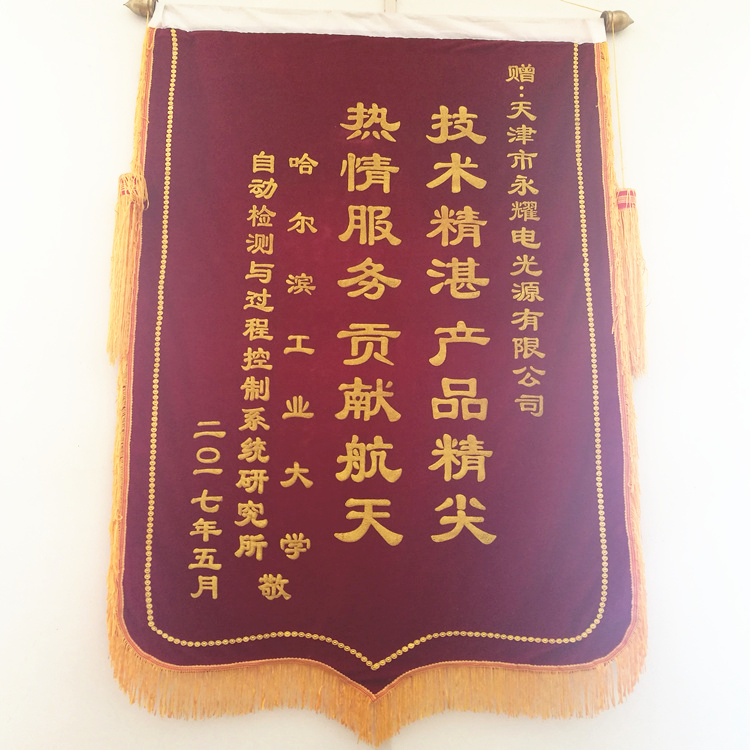 赠:天津市永耀电光源有限公司
技术精湛产品精尖
热情服务贡献航天
哈尔滨工业大学
自动检测与过程控制系统研究所
敬
二〇一七年五月